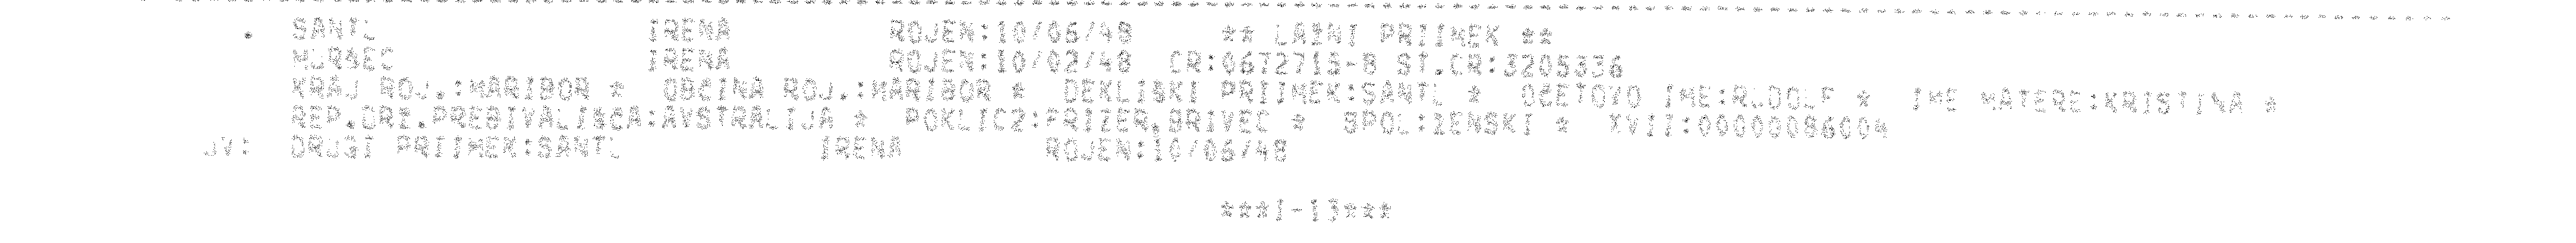 . SANTL IRENA ROJEN:10/06/48 ** LAZNI PRIIMEK **
IRENA ROJEN:10/02/48 CR:0672715-8 ST.CR:3205336
KRAJ ROJ.:MARIBOR * OBCINA ROJ.:MARIBOR * DEKLISKI PRIIMEK:SANTL * OCETOVO IME:RUDOLF * IME MATERE:KRISTINA *
REP.DRZ.PREBIVALISCA:AVSTRALIJA * POKLIC2:FRIZER,BRIVEC * SPOL:ZENSKI * XVII:00000086004
JV: DRUGI PRIIMEK:SANTL IRENA ROJEN:10/06/48
***I-13***